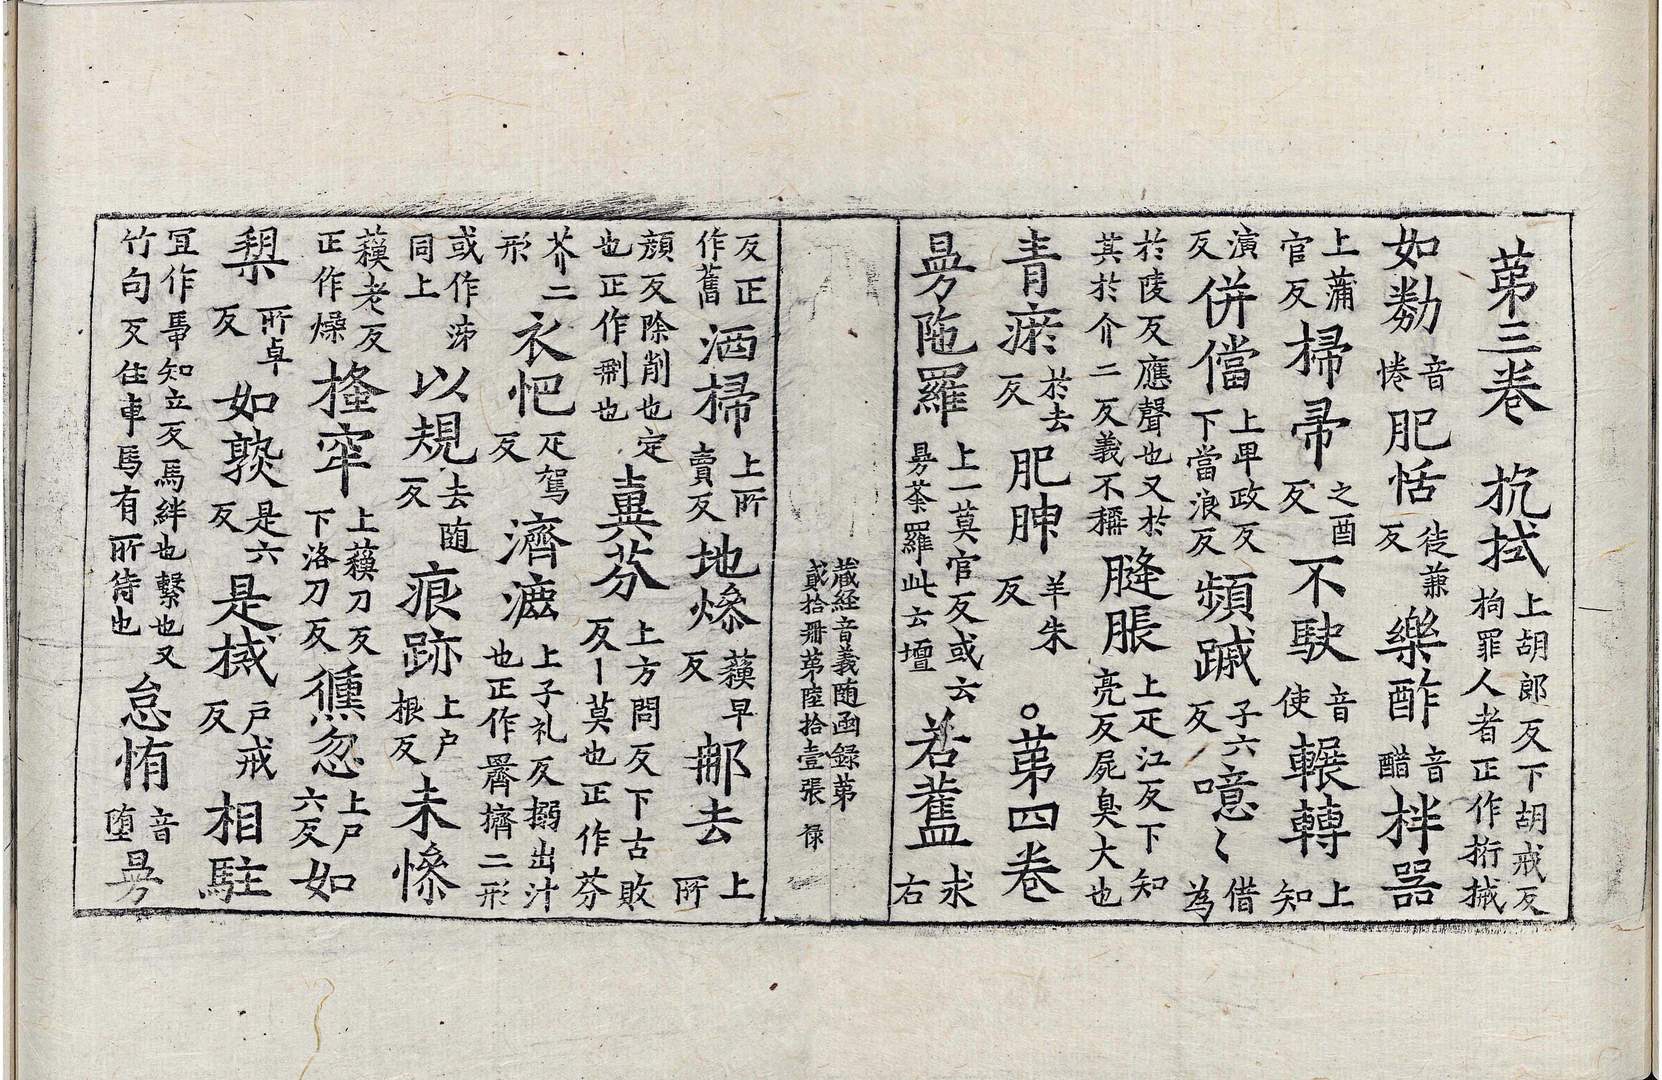 苐三卷 抗拭上胡郎反下胡戒反拘罪人者正作桁械
如勌音惓肥恬徒兼反樂酢音醋柈器
上蒲官反掃帚之酉反不駛音使輾轉上知
演反併儅上畀政反下當浪反頻蹙子六反噫〻借為
於陵反應聲也又於其於介二反義不稱膖脹上疋江反下知亮反屍臭大也
青瘀於去反肥腴羊朱反。苐四卷
㬅陁羅上一莫官反或云㬅荼羅此云壇若舊求右
藏經音義随函録苐
貳拾冊苐陸拾壹張 禄
反正作舊洒掃上所賣反地燥蘓早反郍去上所
顔反除削也定也正作刪也糞芬上方問反下古敗反丨莫也正作芬
芥二形衣帊疋駕反濟漉上子礼反搦出汁也正作霽擠二形
或作㳍同上以規去随反痕跡上户根反未慘
蘓老反正作燥㨶牢上蘓刀反下洛刀反儵忽上尸六反如
㮚所卓反如熟是六反是械户戒反相駐
冝作馽知立反馬絆也繫也又竹句反住車馬有所待也怠惰音堕㬅